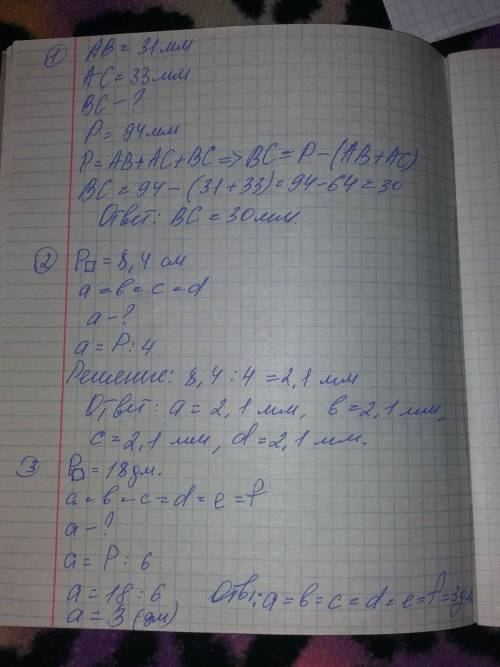 ① AB = 31 мм
AC = 33 мм
BC - ?
P = 94 мм
P = AB + AC + BC => BC = P - (AB + AC)
BC = 94 - (31 + 33) = 94 - 64 = 30
Ответ: BC = 30 мм.
② P□ = 8,4 см
a = в = c = d
a - ?
a = P : 4
Решение: 8,4 : 4 = 2,1 мм
Ответ: a = 2,1 мм, в = 2,1 мм,
c = 2,1 мм, d = 2,1 мм.
③ P□ = 18 дм.
a = в = c = d = e = f
a - ?
a = P : 6
a = 18 : 6 Отв.: a = в = c = d = e = f = 3 дм
a = 3 (дм)